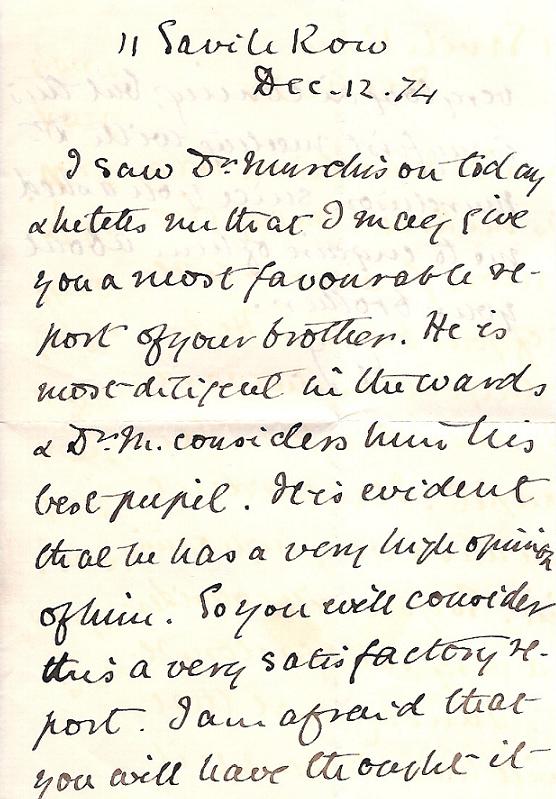 11 Savile Row
Dec. 12. 74
I saw Dr. Murchison today
& he tells me that I may give
you a most favourable re-
port of your brother. He is
most diligent in the wards
& Dr. M. considers him his
best pupil. It is evident
that he has a very high opinion
of him. So you will consider
this a very satisfactory re-
port. I am afraid that
you will have thought it